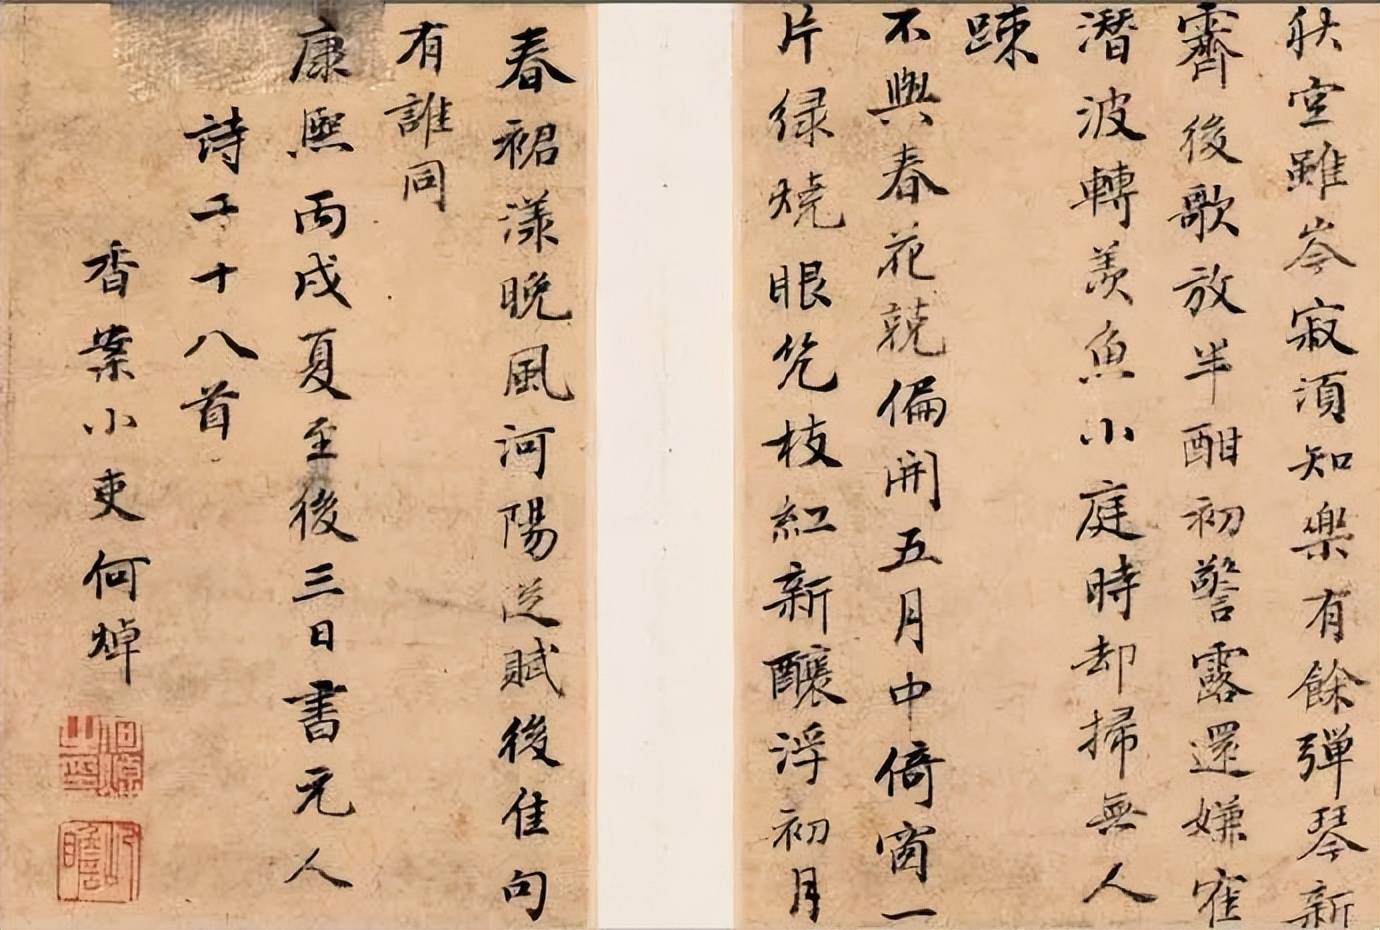 秋室雖岑寂須知樂有餘彈琴新
霽後歌放半酣初警露還嫌寉
潛波轉羨魚小庭時却掃無人
踈
不與春花競偏開五月中倚窗一
片緑燒眼幾枝紅新釀浮初月
春裙漾晚風河陽從賦後佳句
有誰同
康熙丙戌夏至後三日書元人
詩二十八首
香案小吏何焯